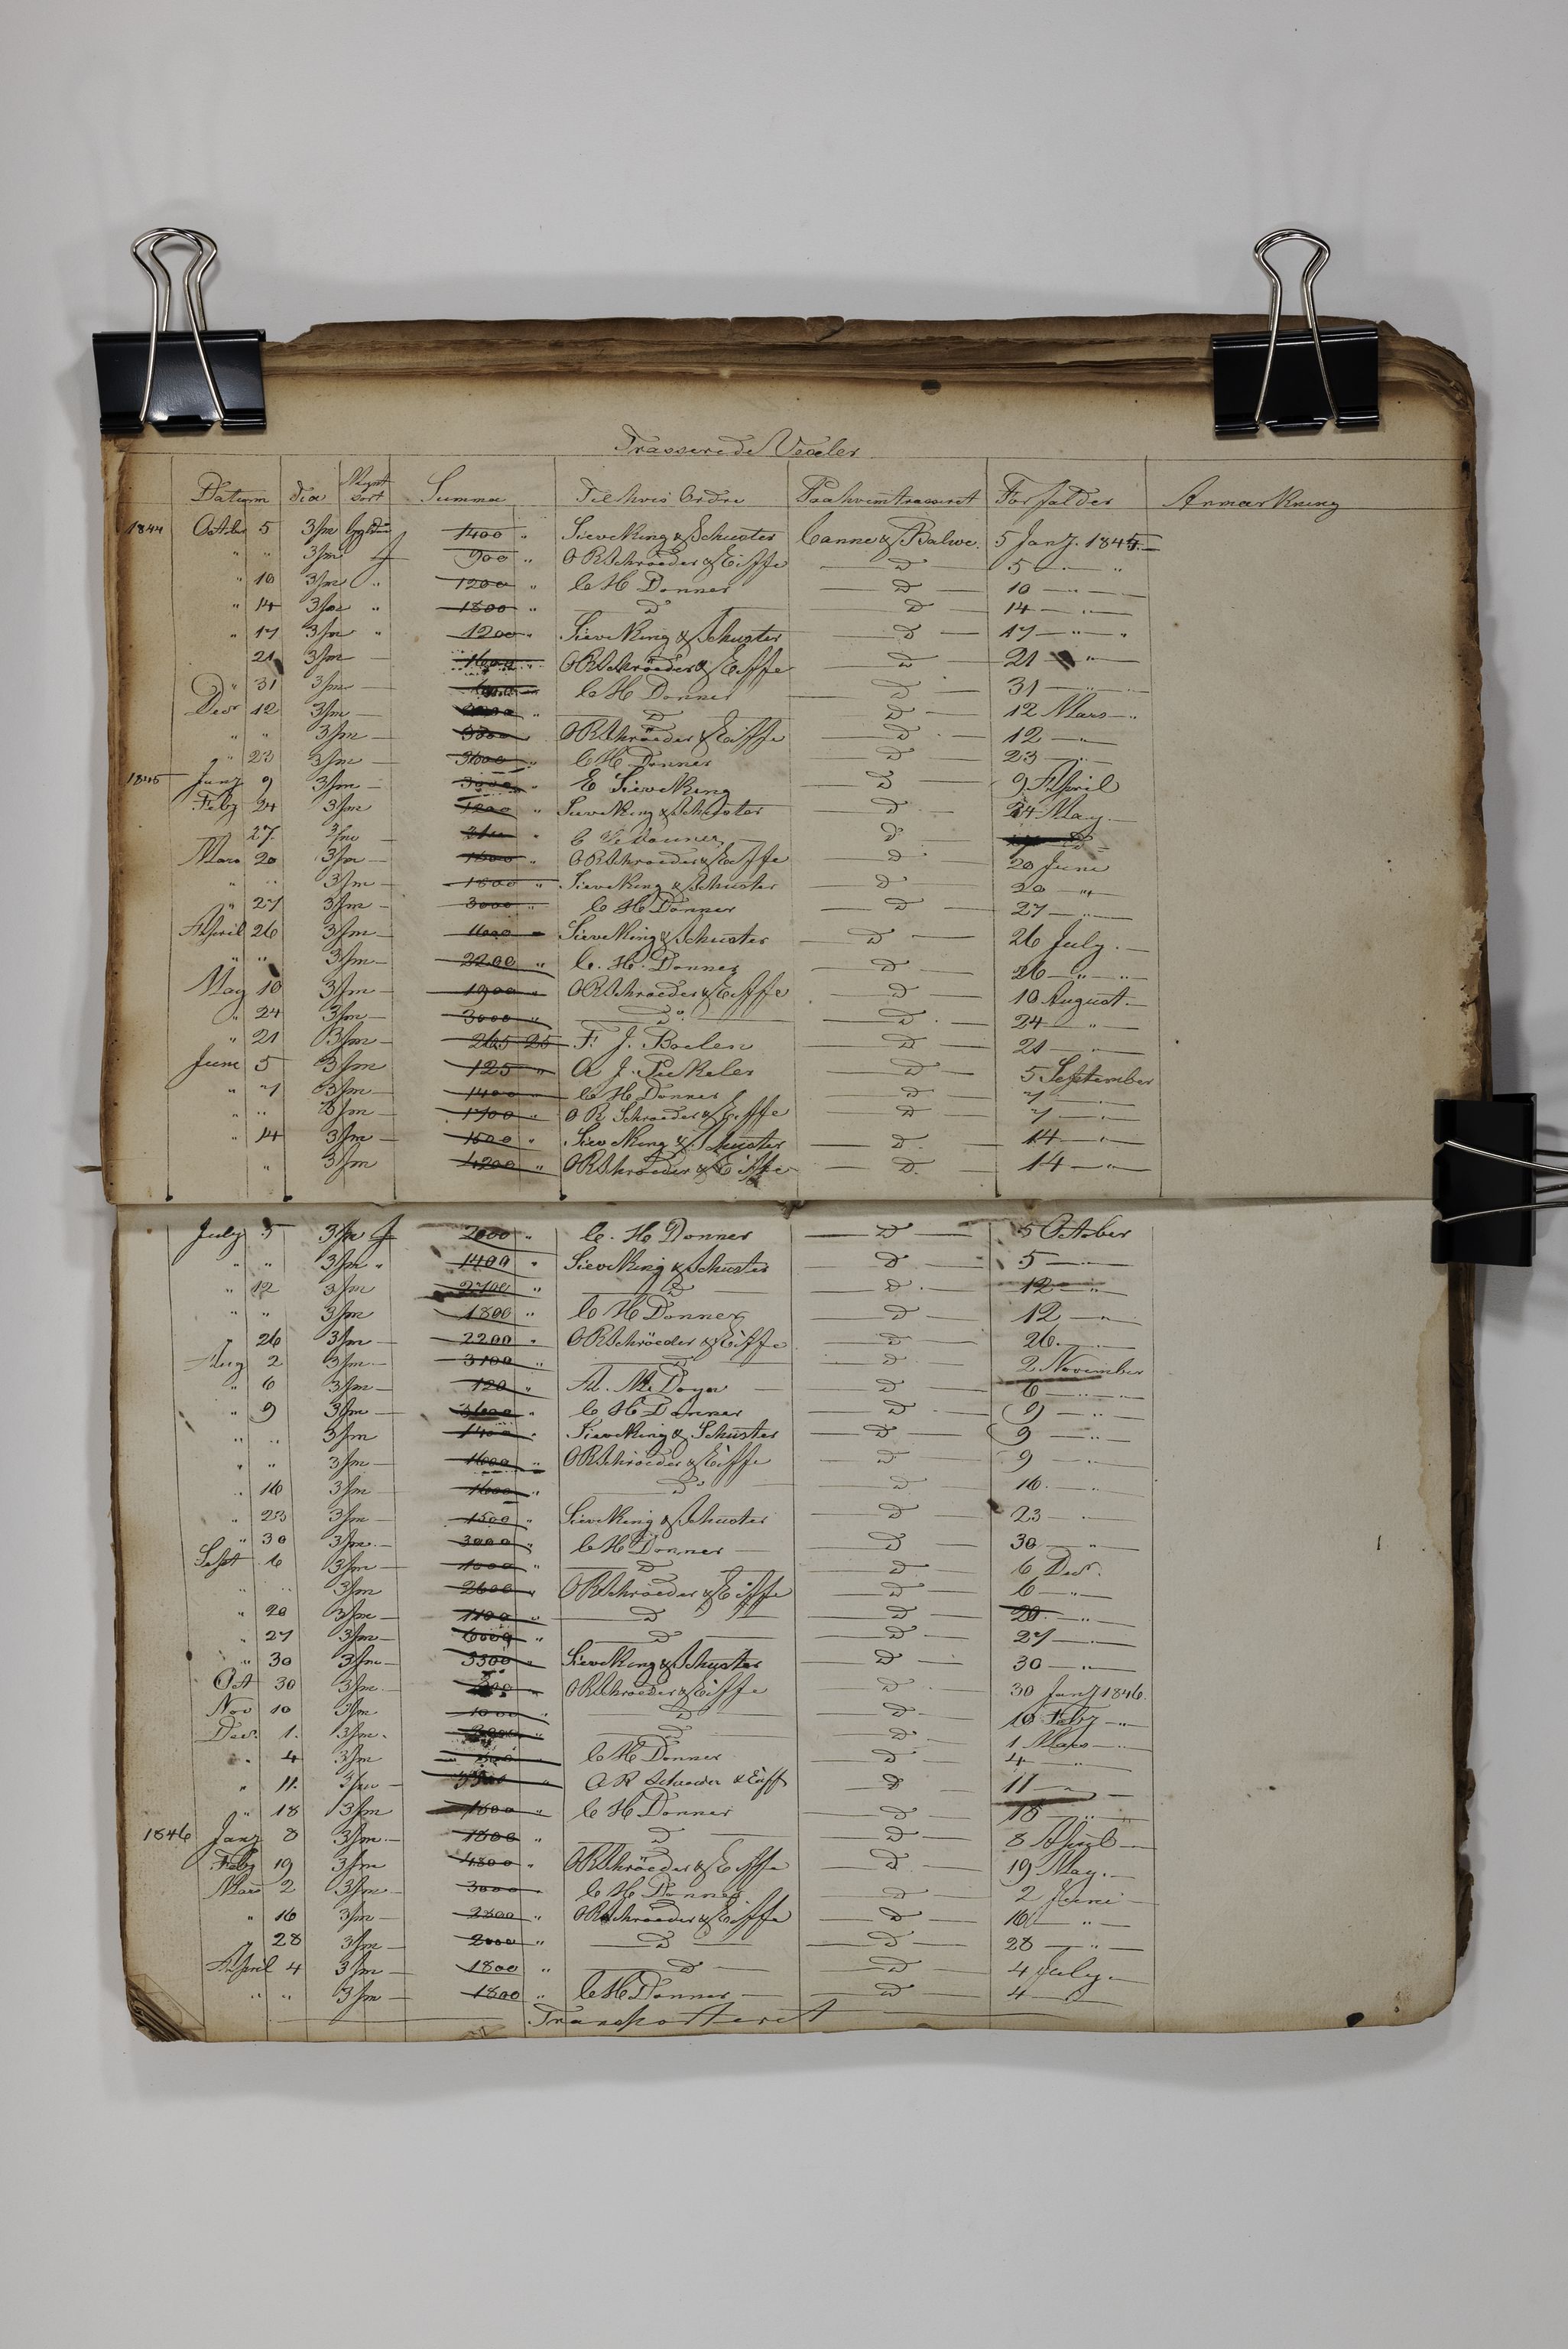 Trasserede Vexler
Datum dia Mynt sort Summa Til hvis Ordre Paa hvem trasseret Forfalder Anmærkning
1844 Octbr 5 3/m 1400 " Sieveking & Schuster Canne & Balwe. 5 Janz. 1845
" " 3/m 900 " O R Schroeder & Eiffe D 5 — "
" 10 3/m " 1200 " C H Donner D 10 — " —
" 14 3/m " 1800 " D D 14 — " —
" 17 3/m " 1200 " Sieveking & Schuster D 17 — " — "
21 3/m — 1600 " O R Schröeder & Eiffe D 21 — " —
" 31 3/m — C H Donner D 31 — " —
Decr 12 3/m — " D D 12 Mars — "
" " 3/m — " O R Schröeder & Eiffe D 12 — " —
" 23 3/m — 3600 " C H Donner D 23 — " —
1845 Janz 9 3/m — " E Sieveking D 9 April
Feby 24 3/m 1200 " Sieveking & Schuster D 24 May —
27. 3/m " C H Donner, — D
Mars 20 3/m — O R Schroeder & Eiffe D 20 June
" " 3/m — 1800 " Sieveking & Schuster D 20 — " —
" 27 3/m — 3000 " C H Donner D 27 — " —
April 26 3/m — 1600 Sieveking & Schuster D 26 July. —
" " 3/m — 2200 " C. H. Donner D 26 — " — "
May 10 3/m — 1900 " O R Schroeder & Eiffe D 10 August —
" 24 3/m — 3000 " Do D 24 — " —
" 21 3/m — 265 25 F. J. Boelen D 21 — " —
June 5 3/m 125 " A J. Pickeler D 5 September
" 7 3/m — 1400 " C H Donner D 7 — " —
" " 3/m — 1700 " O R Schroeder & Eiffe D 7 — " —
" 14 3/m — 1500 " Sieveking & Schuster D. 14 — " —
" 3/m 4200 " O R Schroeder & Eiffe D. 14 — " —
July 5 3/m 2000 " C. H. Donner D 5 October
" " 3/m " 1400 " Sieveking & Schuster D 5 — " —
" 12 3/m 2700 " D D 12 — " —
" " 3/m 1800 " C H Donner D 12 — " —
" 26 3/m — 2200 " O R Schröeder & Eiffe D 26 — " —
Aug 2 3/m — 3100 " D D 2 November
" 6 3/m — 120 " D 6 — " —
" 9 3/m — 3600 " C H Donner D 9 — " —
" " 3/m 1400 " Sieveking & Schuster D 9 — " —
" " 3/m — 1600 " O R Schröeder & Eiffe D 9 — " —
" 16 3/m — 1600 " Do D 16 — " —
" 23 3/m — 1500 " Sieveking & Schuster D 23 — " —
" 30 3/m — 3000 " C H Donner — D 30 — " —
Sept 6 3/m — " D D 6 Decr.
" " 3/m 2600 " O R Schröeder & Eiffe D 6 — " —
" 20 3/m — 1100 " D D 20 — " —
" 27 3/m — 6000 " D D 27 — " —
" 30 3/m — 3300 " Sieveking & Schuster D 30 — " —
Oct 30 3/m — " O R Schröeder & Eiffe D 30 Janz 1846.
Nov 10 3/m 1000 " D D 10 Feby — "
Decr. 1. 3/m. " D D 1 Mars — "
" 4 3/m C H Donner D 4 — " —
" 11. 3/m — " O R Schroeder & Eiff D 11 —
" 18 3/m " C H Donner D 18 — " —
1846 Janz 8 3/m — 1800 " D D 8 April —
Feby 19 3/m " O R Schröeder & Eiffe D 19 May. —
Mars 2 3/m — 3000 C H Donner D 2 Juni —
" 16 3/m — " O R Schroeder & Eiffe D 16 — " —
" 28 3/m — 2000 " D D 28 — " —
April 4 3/m — 1800 " D D 4 July —
" " 3/m — 1800 " C H Donner — D 4 —
Transporteret